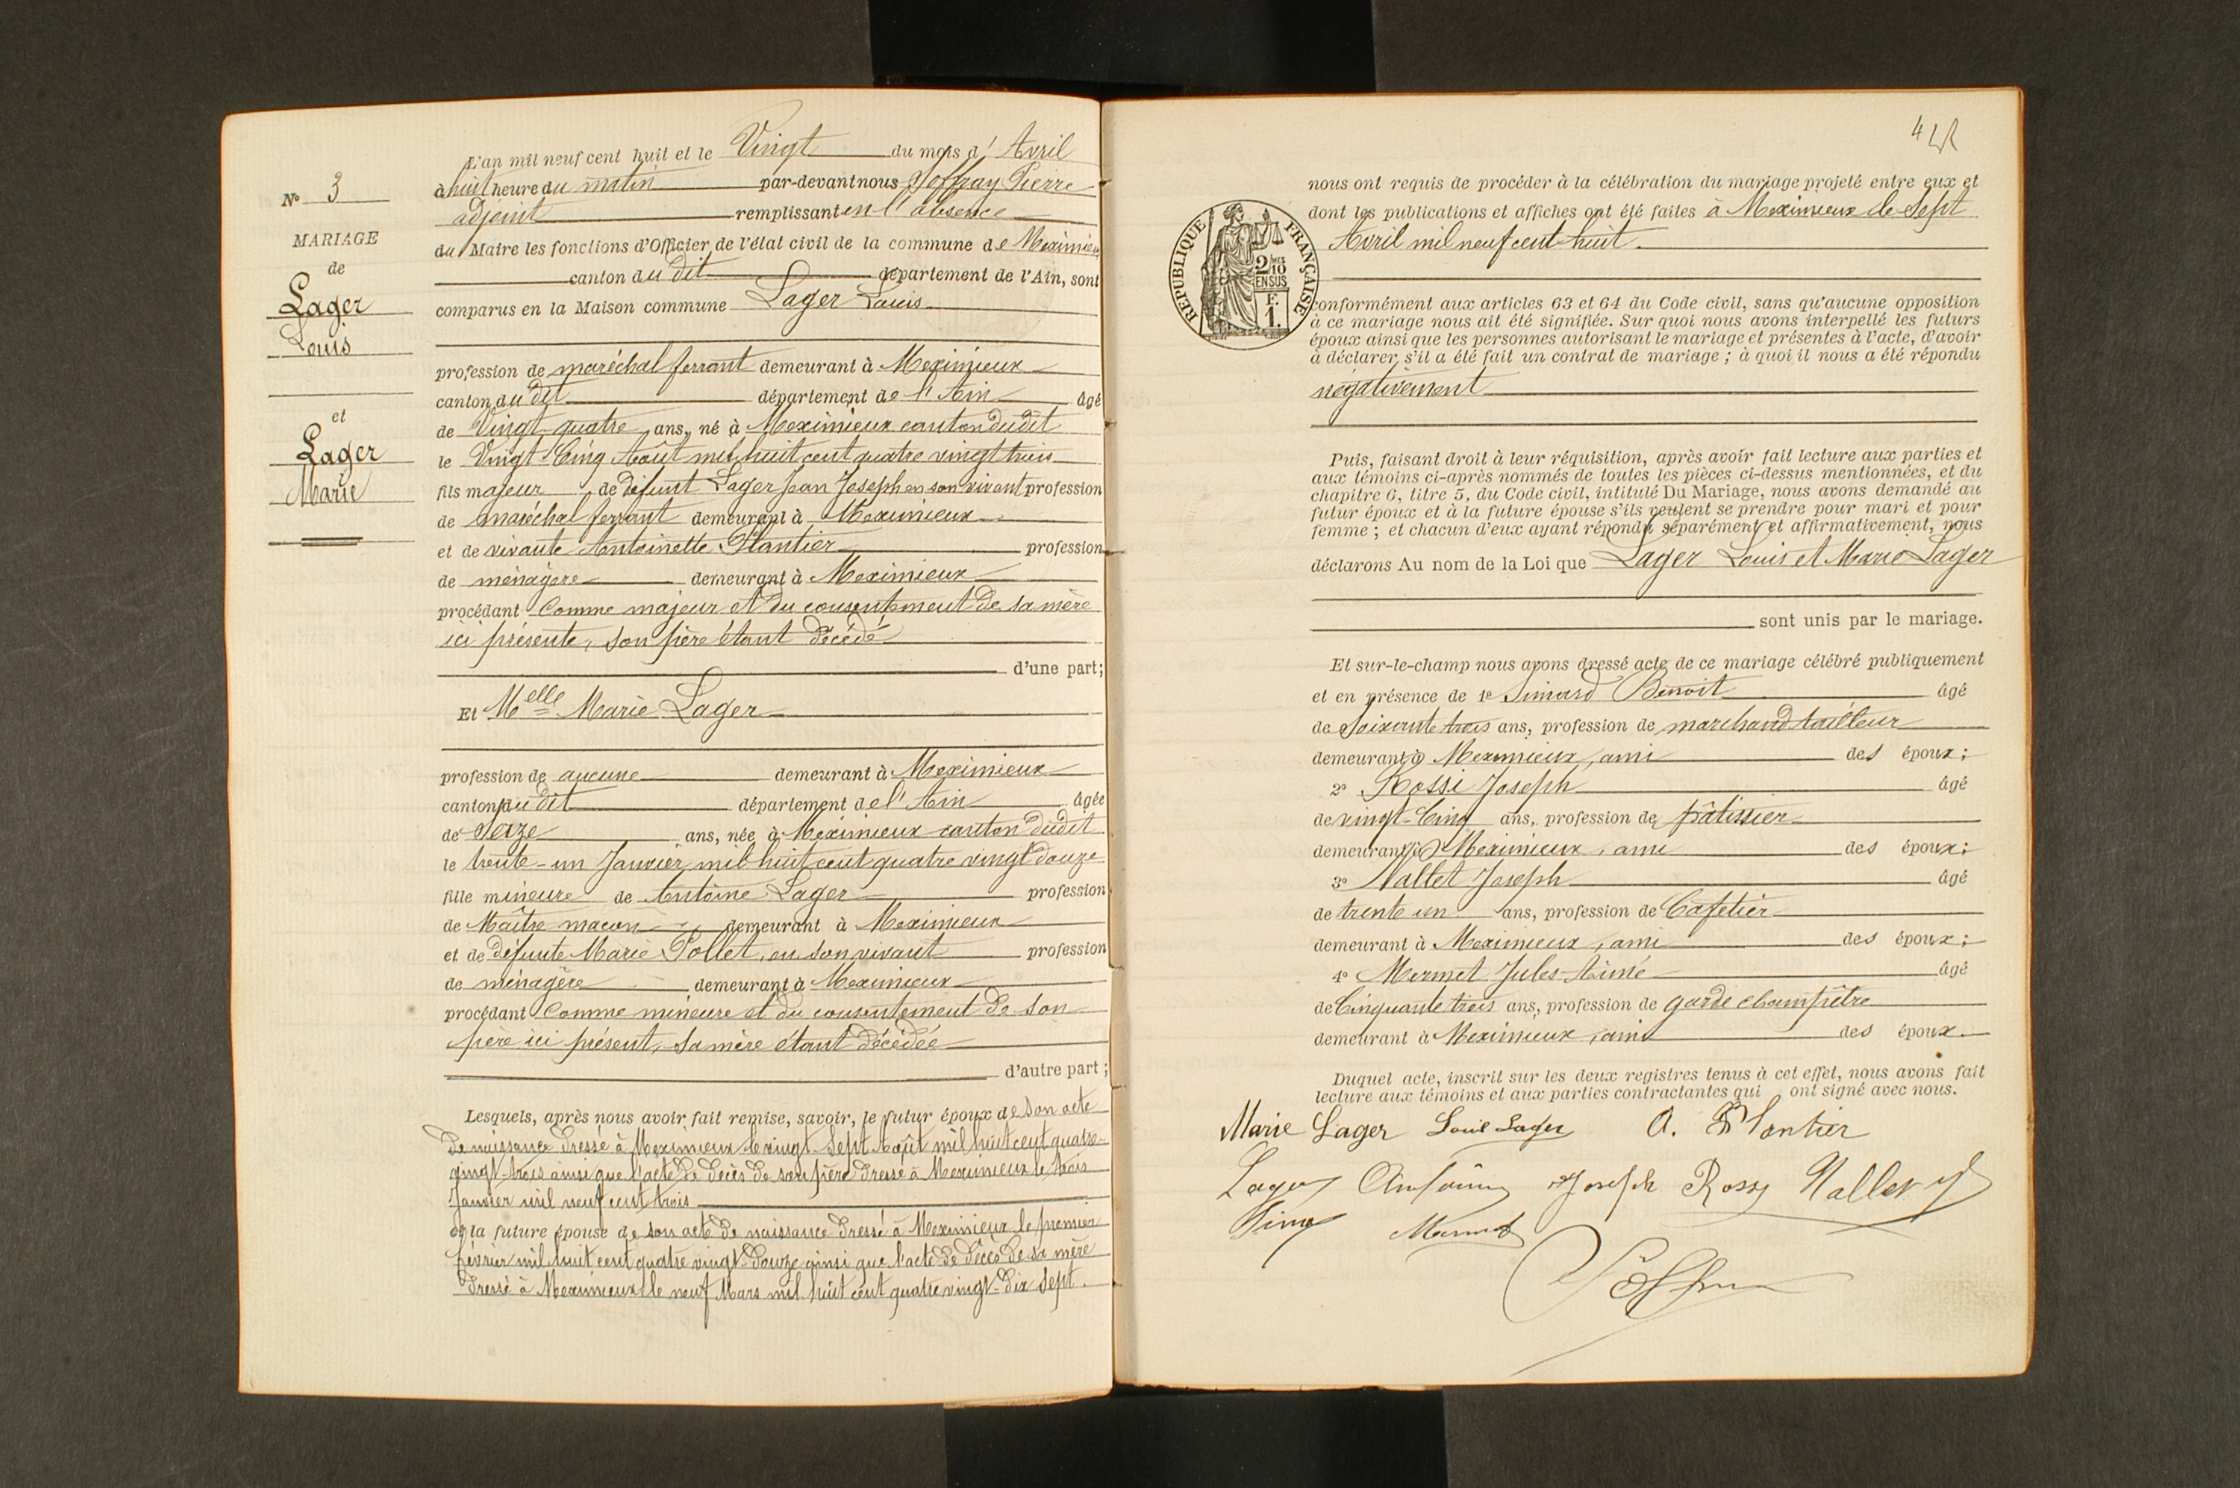 L'an mil neuf cent huit et le Vingt du mois d'Avril
N° 3
à huit heure du matin par-devant nous Joffray Pierre
adjoint remplissant en l'absence
MARIAGE
du Maire les fonctions d'Officier de l'état civil de la commune de Meximieux
de
canton du dit département de l'Ain, sont
Lager
comparus en la Maison commune Lager Louis
Louis
profession de maréchal ferrant demeurant à Meximieux
canton du dit département de l'Ain âgé
et
de Vingt-quatre ans, né à Meximieux canton dudit
Lager
le Vingt-Cinq Août mil huit cent quatre vingt trois
Marie
fils majeur de défunt Lager Jean Joseph en son vivant profession
de maréchal ferrant demeurant à Meximieux
et de vivante Antoinette Plantier profession
de ménagère demeurant à Meximieux
procédant Comme majeur et du consentement de sa mère
ici présente, son père étant décédé
d'une part;
Et Melle Marie Lager
profession de aucune demeurant à Meximieux
canton du dit département de l'Ain âgée
de Seize ans, née à Meximieux canton dudit
le trente-un Janvier mil huit cent quatre vingt douze
fille mineure de Antoine Lager profession
de Maître maçon demeurant à Meximieux
et de défunte Marie Pollet, en son vivant profession
de ménagère demeurant à Meximieux
procédant Comme mineure et du consentement de son
père ici présent, sa mère étant décédée
d'autre part;
Lesquels, après nous avoir fait remise, savoir, le futur époux de son acte
de naissance dressé à Meximieux le vingt-sept Août mil huit cent quatre-
vingt-trois ainsi que l'acte de décès de son père dressé à Meximieux le trois
Janvier mil neuf cent trois
et la future épouse de son acte de naissance dressé à Meximieux le premier
février mil huit cent quatre vingt-douze ainsi que l'acte de décès de sa mère
dressé à Meximieux le neuf Mars mil huit cent quatre vingt-dix sept.
nous ont requis de procéder à la célébration du mariage projeté entre eux et
dont les publications et affiches ont été faites à Meximieux le Sept
Avril mil neuf cent huit.
RÉPUBLIQUE FRANÇAISE
2/10 EN SUS
F. 1.
conformément aux articles 63 et 64 du Code civil, sans qu'aucune opposition
à ce mariage nous ait été signifiée. Sur quoi nous avons interpellé les futurs
époux ainsi que les personnes autorisant le mariage et présentes à l'acte, d'avoir
à déclarer s'il a été fait un contrat de mariage ; à quoi il nous a été répondu
négativement
Puis, faisant droit à leur réquisition, après avoir fait lecture aux parties et
aux témoins ci-après nommés de toutes les pièces ci-dessus mentionnées, et du
chapitre 6, titre 5, du Code civil, intitulé Du Mariage, nous avons demandé au
futur époux et à la future épouse s'ils veulent se prendre pour mari et pour
femme ; et chacun d'eux ayant répondu séparément et affirmativement, nous
déclarons Au nom de la Loi que Lager Louis et Marie Lager
sont unis par le mariage.
Et sur-le-champ nous avons dressé acte de ce mariage célébré publiquement
et en présence de 1° Simard Benoit âgé
de Soixante trois ans, profession de marchand tailleur
demeurant à Meximieux, ami des époux;
2° Rossi Joseph âgé
de vingt-Cinq ans, profession de pâtissier
demeurant à Meximieux, ami des époux;
3° Nallet Joseph âgé
de trente un ans, profession de Cafetier
demeurant à Meximieux, ami des époux;
4° Mermet Jules-Aimé âgé
de Cinquante trois ans, profession de garde champêtre
demeurant à Meximieux, ami des époux.
Duquel acte, inscrit sur les deux registres tenus à cet effet, nous avons fait
lecture aux témoins et aux parties contractantes qui ont signé avec nous.
Marie Lager Louis Lager A. Plantier
Lager Antoine Joseph Rossy Nallet J
Mermet